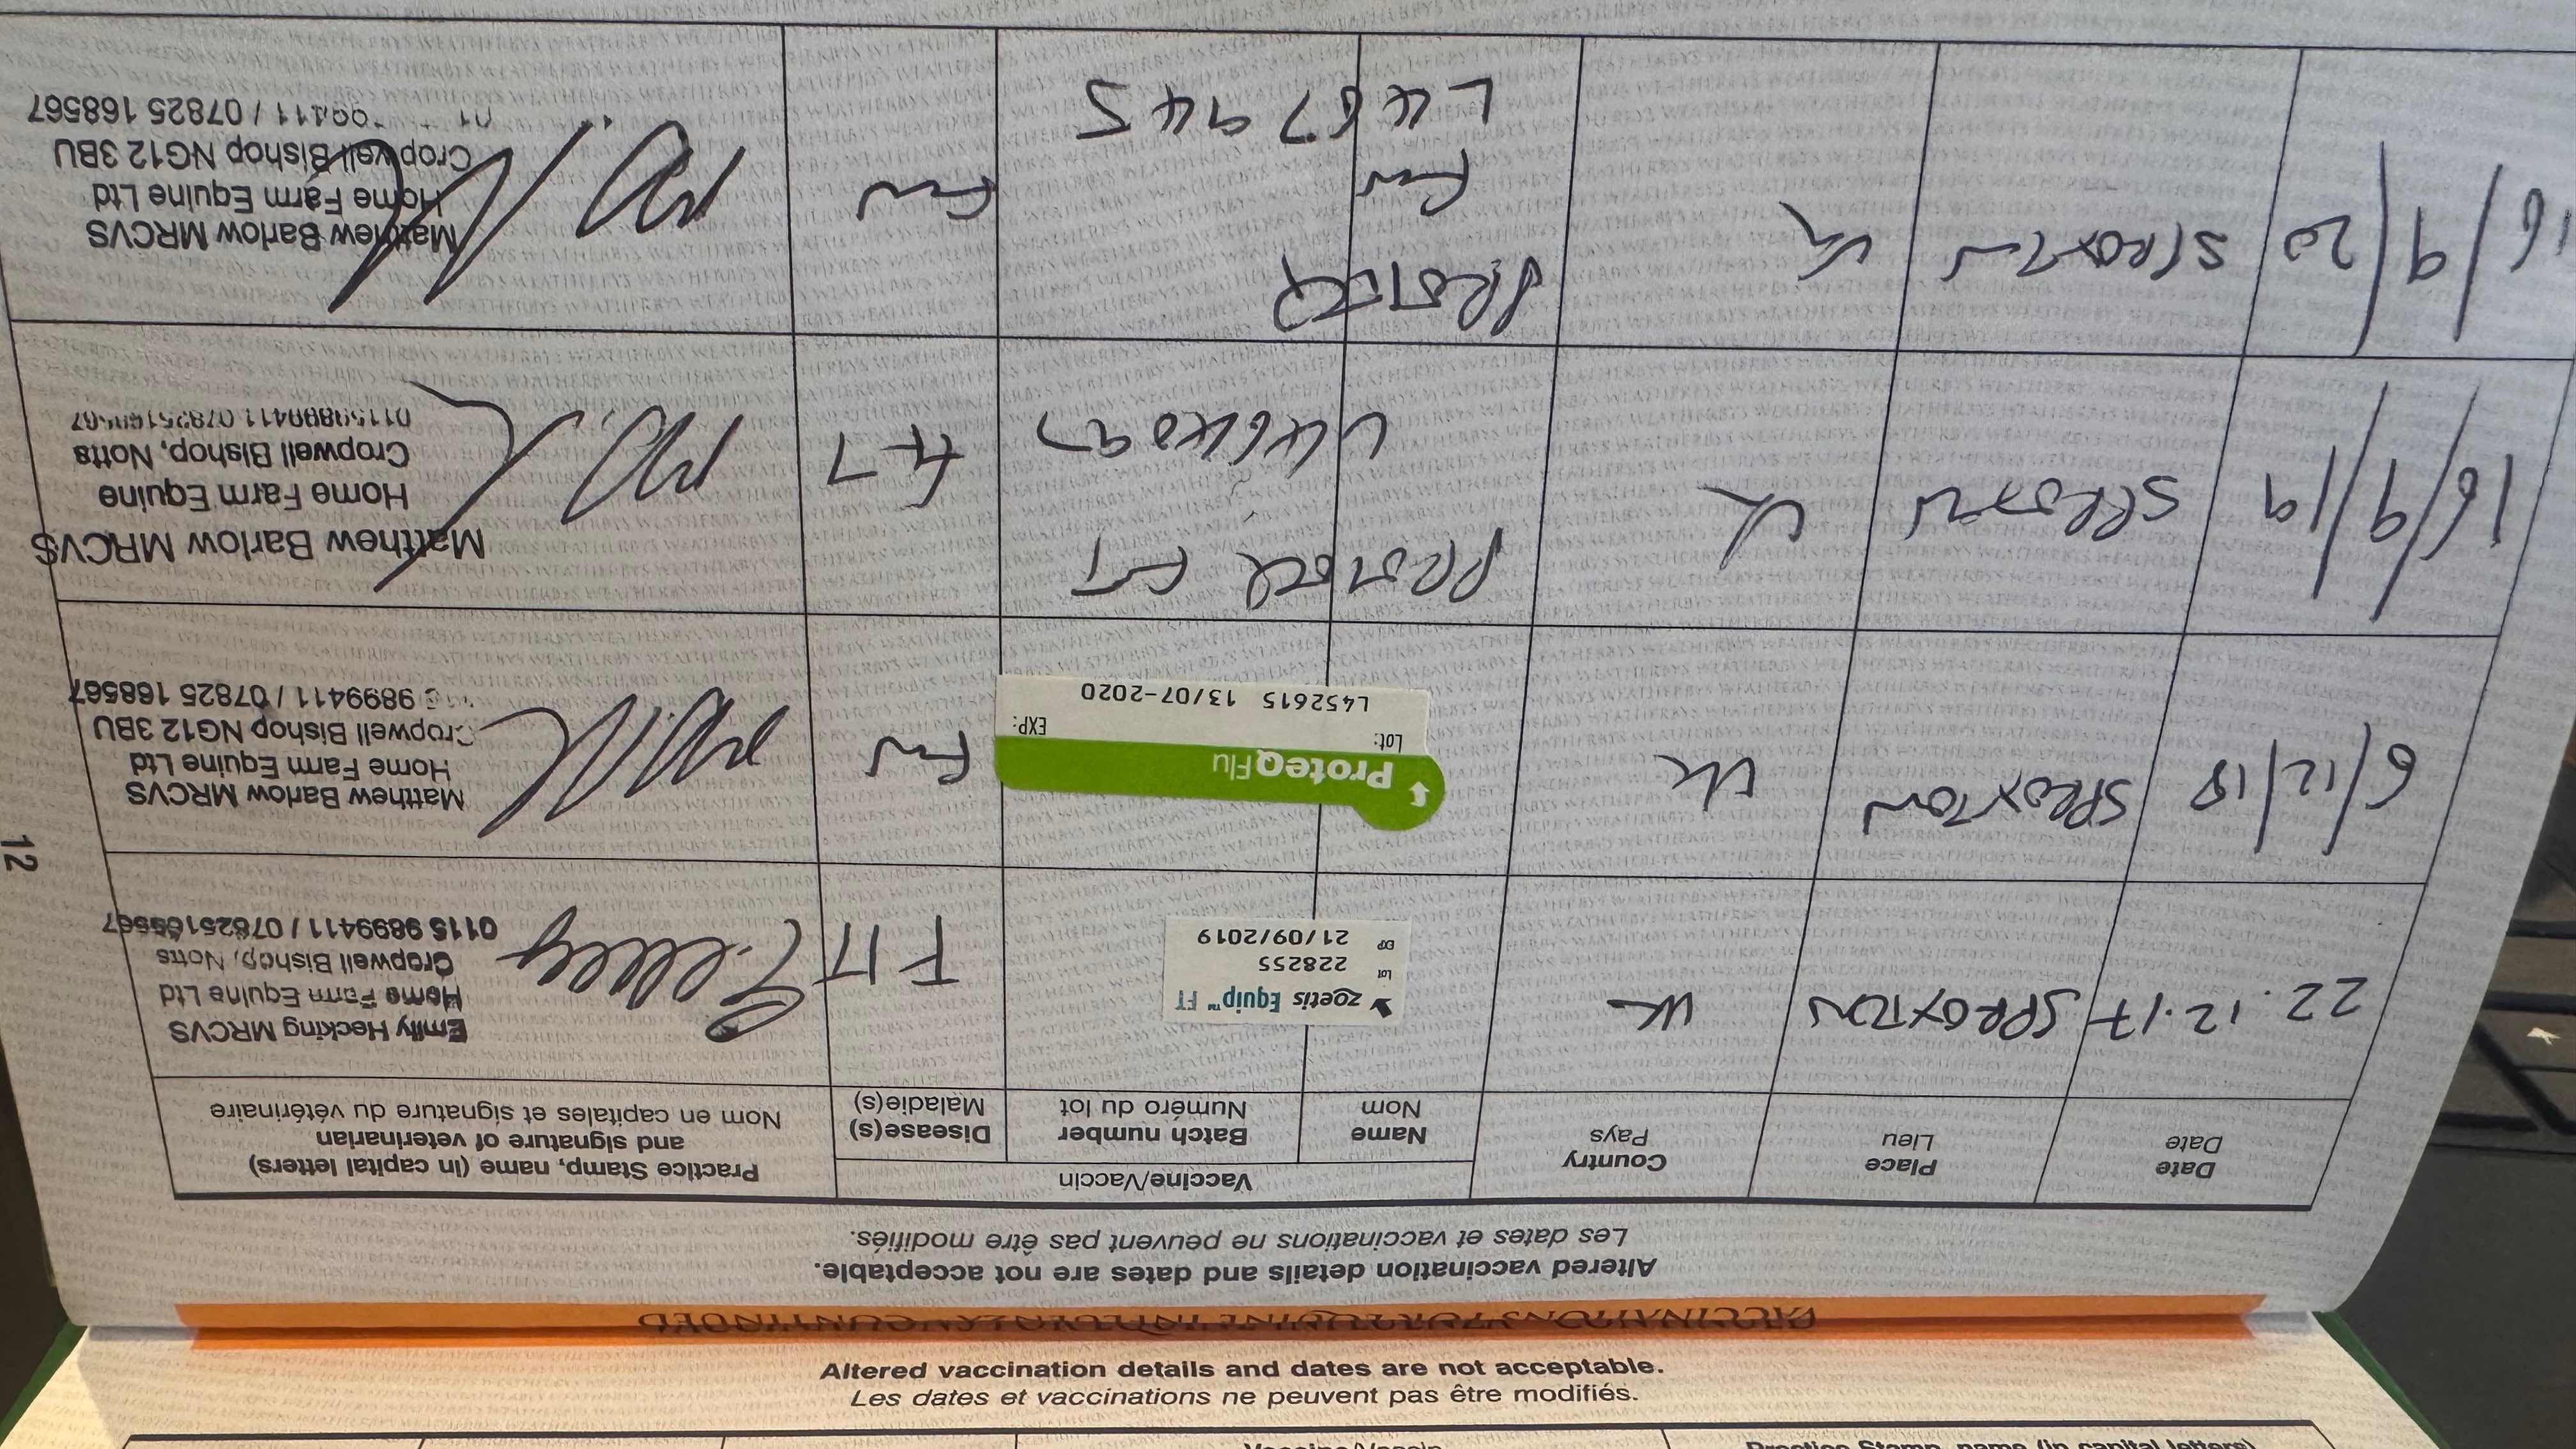 VACCINATIONS FOR EQUINE INFLUENZA CONTINUED
Altered vaccination details and dates are not acceptable.
Les dates et vaccinations ne peuvent pas être modifiés.
Date
Date
Place
Lieu
Country
Pays
Vaccine/Vaccin
Name
Nom
Batch number
Numéro du lot
Disease(s)
Maladie(s)
Practice Stamp, name (in capital letters)
and signature of veterinarian
Nom en capitales et signature du vétérinaire
22.12.17 SPROXTON UK
zoetis Equip™ FT
Lot 228255
EXP 21/09/2019
F/T
Emily Hecking MRCVS
Home Farm Equine Ltd
Cropwell Bishop, Notts
0115 9899411 / 07825168567
6/12/18 SPROXTON UK
ProteqFlu
Lot: EXP:
L452615 13/07-2020
Flu
Matthew Barlow MRCVS
Home Farm Equine Ltd
Cropwell Bishop NG12 3BU
9899411 / 07825 168567
16/9/19 SPROXTON UK
PROTEQ FT
FT
Matthew Barlow MRCVS
Home Farm Equine
Cropwell Bishop, Notts
01159899411 07825168567
16/9/20 SPROXTON UK
PROTEQ
Flu
L467945
Flu
Matthew Barlow MRCVS
Home Farm Equine Ltd
Cropwell Bishop NG12 3BU
99411 / 07825 168567
12
Altered vaccination details and dates are not acceptable.
Les dates et vaccinations ne peuvent pas être modifiés.
Vaccine/Vaccin
Practice Stamp, name (in capital letters)